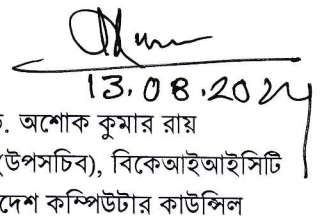 13.08.2024
ড. অশোক কুমার রায়
(উপসচিব), বিকেআইআইসিটি
দেশ কম্পিউটার কাউন্সিল